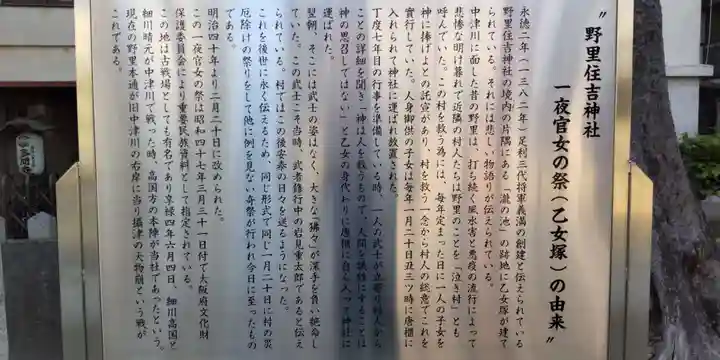 〝野里住吉神社
一夜官女の祭(乙女塚)の由来〟
永徳二年(一三八二年)足利三代将軍義満の創建と伝えられている
野里住吉神社の境内の片隅にある「瀧の池」の跡地に乙女塚が建て
られている。それには悲しい物語りが伝えられている。
中津川に面した昔の野里は、打ち続く風水害と悪疫の流行によって
悲惨な明け暮れで近隣の村人たちは野里のことを「泣き村」とも
呼んでいた。この村を救う為には、毎年定まった日に一人の子女を
神に捧げよとの託宣があり、村を救う一念から村人の総意でこれを
実行していた。人身御供の子女は毎年一月二十日丑三ツ時に唐櫃に
入れられて神社に運ばれ放置された。
丁度七年目の行事を準備している時、一人の武士が立寄り村人から
ことの詳細を聞き「神は人を救うもので、人間を犠牲にすることは
神の思召しではない」と乙女の身代わりに唐櫃に自ら入って神社に
運ばれた。
翌朝、そこには武士の姿はなく、大きな「狒々」が深手を負い絶命し
ていた。この武士こそ当時、武者修行中の岩見重太郎であると伝え
られている。村ではこの後安泰の日々を送るようになった。
これを後世に永く伝えるため、同じ形式で同じ一月二十日に村の災
厄除けの祭りをして他に例を見ない奇祭が行われ今日に至ったもの
である。
明治四十年より二月二十日に改められた。
この一夜官女の祭は昭和四十七年三月三十一日付で大阪府文化財
保護委員会により重要民族資料として指定されている。
この地は古戦場としても有名であり享禄四年六月四日、細川高国と
細川晴元が中津川で戦った時、高国方の本陣が当社であったという。
現在の野里本通が旧中津川の右岸に当り摂津の大物崩という戦が
これである。